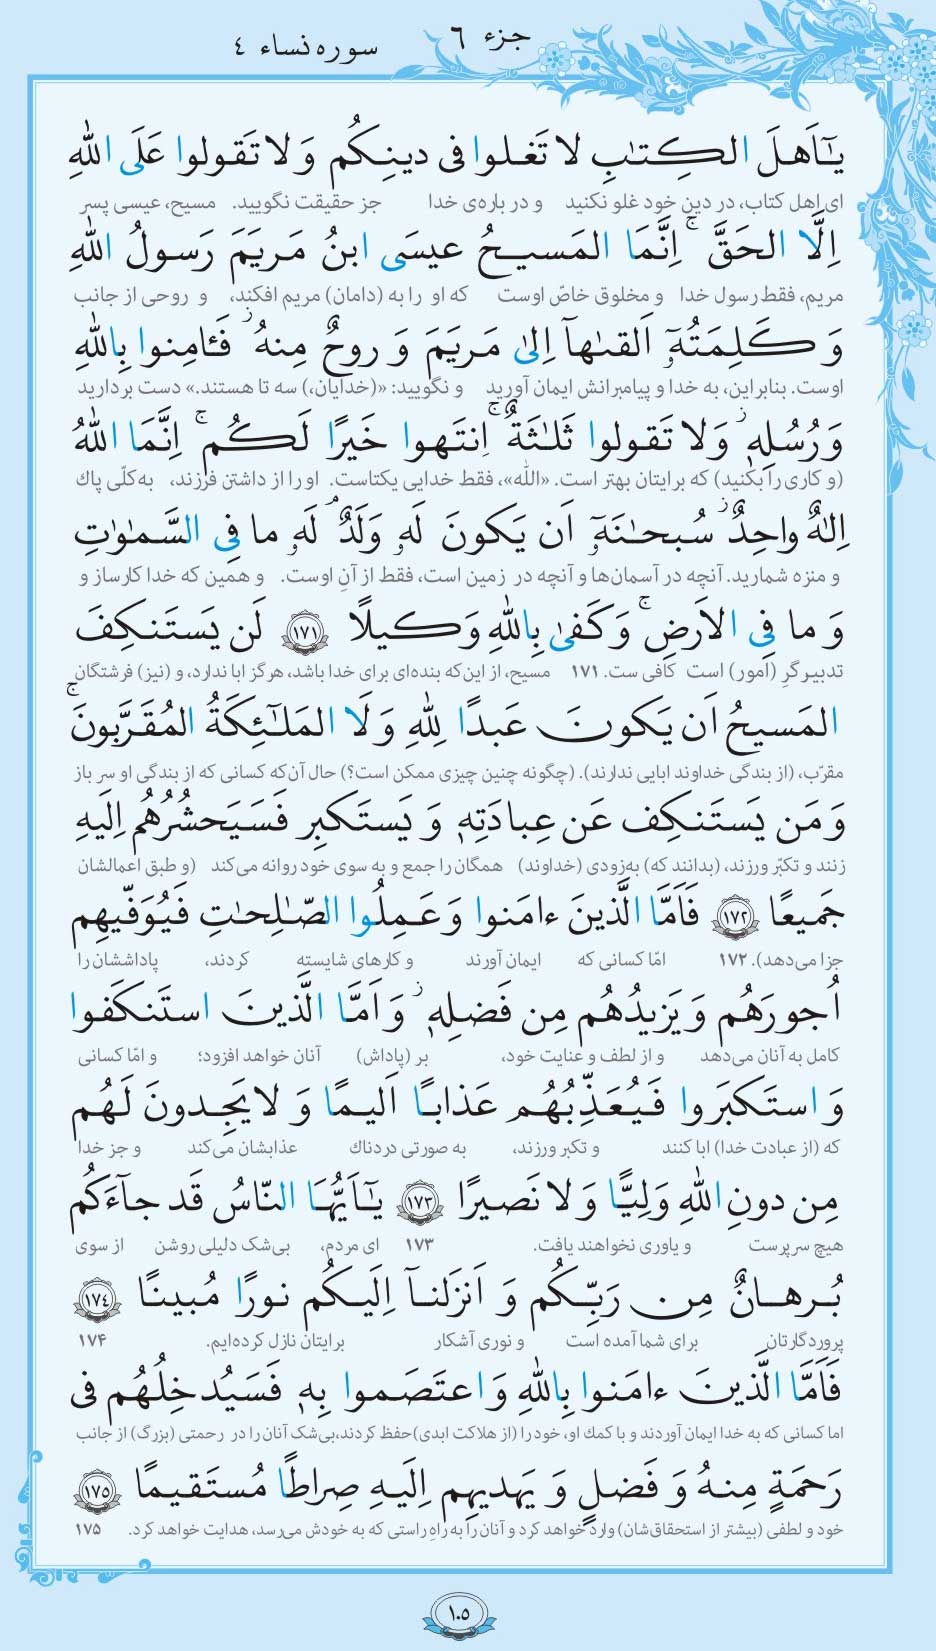 جزء ٦
سوره نساء ٤
يـٰٓاَهلَ الـكِـتٰبِ لا تَغلوا فى دينِـكُم وَ لا تَقولوا عَلَى اللّٰهِ
ای اهل کتاب، در دین خود غلو نکنید و در باره‌ی خدا جز حقیقت نگویید. مسیح، عیسی پسر
اِلَّا الحَقَّ ۚ اِنَّمَا المَسيـحُ عيسَى ابنُ مَريَمَ رَسولُ اللّٰهِ
مریم، فقط رسول خدا و مخلوق خاصّ اوست که او را به (دامان) مریم افکند، و روحی از جانب
وَ كَلِمَتُهٗٓ اَلقىٰهآ اِلىٰ مَريَمَ وَ روحٌ مِنهُ ۖ فَـٔامِنوا بِاللّٰهِ
اوست. بنابراین، به خدا و پیامبرانش ایمان آورید و نگویید: «(خدایان،) سه تا هستند.» دست بردارید
وَ رُسُلِهٖ ۖ وَ لا تَقولوا ثَلٰثَةٌ ۚ اِنتَهوا خَيرًا لَـكُم ۚ اِنَّمَا اللّٰهُ
(و کاری را بکنید) که برایتان بهتر است. «اللّٰه»، فقط خدایی یکتاست. او را از داشتن فرزند، به‌کلّی پاك
اِلٰهٌ واحِدٌ ۖ سُبحـٰنَهٗٓ اَن يَكونَ لَهٗ وَلَدٌ ۘ لَهٗ ما فِى السَّمـٰوٰتِ
و منزه شمارید. آنچه در آسمان‌ها و آنچه در زمین است، فقط از آنِ اوست. و همین که خدا کارساز و
وَ ما فِى الاَرضِ ۚ وَ كَفىٰ بِاللّٰهِ وَكـيلًا ١٧١ لَن يَستَنكِفَ
تدبیـرگر (امور) است کافی ست. ۱۷۱ مسیح، از این‌که بنده‌ای برای خدا باشد، هرگز ابا ندارد، و (نیز) فرشتگان
المَسيحُ اَن يَكونَ عَبدًا لِلّٰهِ وَ لَا المَلـٰٓئِكَةُ المُقَرَّبونَ ۚ
مقرّب، (از بندگی خداوند ابایی ندارند). (چگونه چنین چیزی ممکن است؟) حال آن‌که کسانی که از بندگی او سر باز
وَ مَن يَستَنكِف عَن عِبادَتِهٖ وَ يَستَكبِر فَسَيَحشُرُهُم اِلَيهِ
زنند و تکبّر ورزند، (بدانند که) به‌زودی (خداوند) همگان را جمع و به سوی خود روانه می‌کند (و طبق اعمالشان
جَميعًا ١٧٢ فَاَمَّا الَّذينَ ءامَنوا وَ عَمِلُوا الصّـٰلِحـٰتِ فَيُوَفّيهِم
جزا می‌دهد). ۱۷۲ امّا کسانی که ایمان آورند و کارهای شایسته کردند، پاداششان را
اُجورَهُم وَ يَزيدُهُم مِن فَضلِهٖ ۖ وَ اَمَّا الَّذينَ استَنكَفوا
کامل به آنان می‌دهد و از لطف و عنایت خود، بر (پاداش) آنان خواهد افزود؛ و امّا کسانی
وَ استَكبَروا فَيُعَذِّبُهُم عَذابًا اَليمًا وَ لا يَجِدونَ لَهُم
که (از عبادت خدا) ابا کنند و تکبر ورزند، به صورتی دردناك عذابشان می‌کند و جز خدا
مِن دونِ اللّٰهِ وَلِيًّا وَ لا نَصيرًا ١٧٣ يـٰٓاَيُّهَا النّاسُ قَد جآءَكُم
هیچ سرپرست و یاوری نخواهند یافت. ۱۷۳ ای مردم، بی‌شک دلیلی روشن از سوی
بُرهـانٌ مِن رَبِّكُم وَ اَنزَلنـآ اِلَيكُم نورًا مُبينًا ١٧٤
پروردگارتان برای شما آمده است و نوری آشکار برایتان نازل کرده‌ایم. ۱۷۴
فَاَمَّا الَّذينَ ءامَنوا بِاللّٰهِ وَ اعتَصَموا بِهٖ فَسَيُدخِلُهُم فى
اما کسانی که به خدا ایمان آوردند و با کمك او، خود را (از هلاکت ابدی) حفظ کردند، بی‌شک آنان را در رحمتی (بزرگ) از جانب
رَحمَةٍ مِنهُ وَ فَضلٍ وَ يَهديهِم اِلَيهِ صِراطًا مُستَقيمًا ١٧٥
خود و لطفی (بیشتر از استحقاق‌شان) وارد خواهد کرد و آنان را به راهِ راستی که به خودش می‌رسد، هدایت خواهد کرد. ۱۷۵
١٠٥